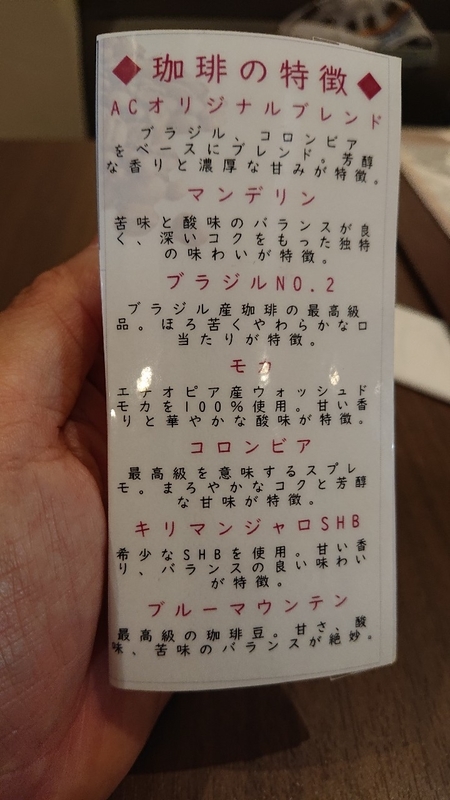 ◆珈琲の特徴◆
ACオリジナルブレンド
ブラジル、コロンビア
をベースにブレンド。芳醇
な香りと濃厚な甘みが特徴。
マンデリン
苦味と酸味のバランスが良
く、深いコクをもった独特
の味わいが特徴。
ブラジルNO.2
ブラジル産珈琲の最高級
品。ほろ苦くやわらかな口
当たりが特徴。
モカ
エチオピア産ウォッシュド
モカを100%使用。甘い香
りと華やかな酸味が特徴。
コロンビア
最高級を意味するスプレ
モ。まろやかなコクと芳醇
な甘味が特徴。
キリマンジャロSHB
希少なSHBを使用。甘い香
り、バランスの良い味わい
が特徴。
ブルーマウンテン
最高級の珈琲豆。甘さ、酸
味、苦味のバランスが絶妙。